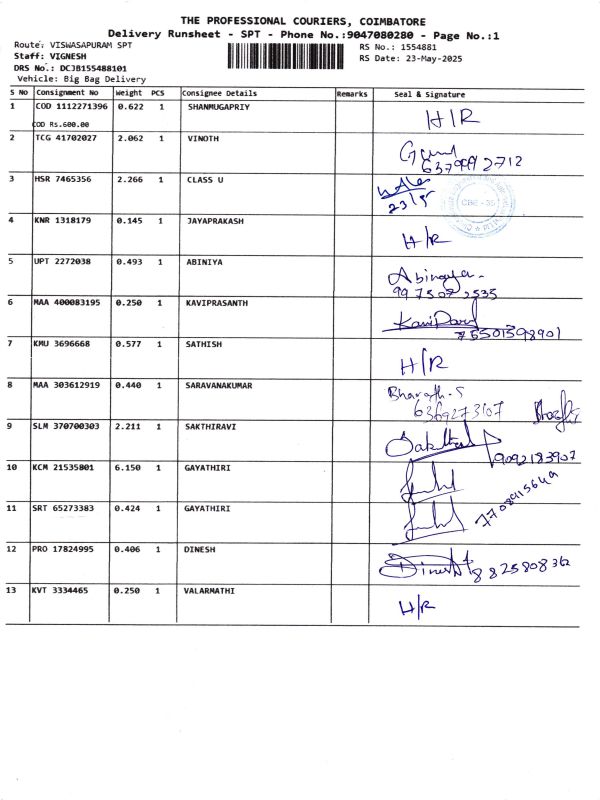 THE PROFESSIONAL COURIERS, COIMBATORE
Delivery Runsheet - SPT - Phone No.:9047080280 - Page No.:1
Route: VISWASAPURAM SPT
RS No.: 1554881
Staff: VIGNESH
RS Date: 23-May-2025
DRS No.: DCJB155488101
Vehicle: Big Bag Delivery
S No Consignment No Weight PCS Consignee Details Remarks Seal & Signature
1 COD 1112271396 0.622 1 SHANMUGAPRIY H/R
COD Rs.600.00
2 TCG 41702027 2.062 1 VINOTH
3 HSR 7465356 2.266 1 CLASS U
23/5
CBE - 35
4 KNR 1318179 0.145 1 JAYAPRAKASH H/R
5 UPT 2272038 0.493 1 ABINIYA
6 MAA 400083195 0.250 1 KAVIPRASANTH
7 KMU 3696668 0.577 1 SATHISH H/R
8 MAA 303612919 0.440 1 SARAVANAKUMAR Bharath.S
9 SLM 370700303 2.211 1 SAKTHIRAVI
9092183907
10 KCM 21535801 6.150 1 GAYATHIRI
11 SRT 65273383 0.424 1 GAYATHIRI
12 PRO 17824995 0.406 1 DINESH Dinesh
8825808362
13 KVT 3334465 0.250 1 VALARMATHI H/R